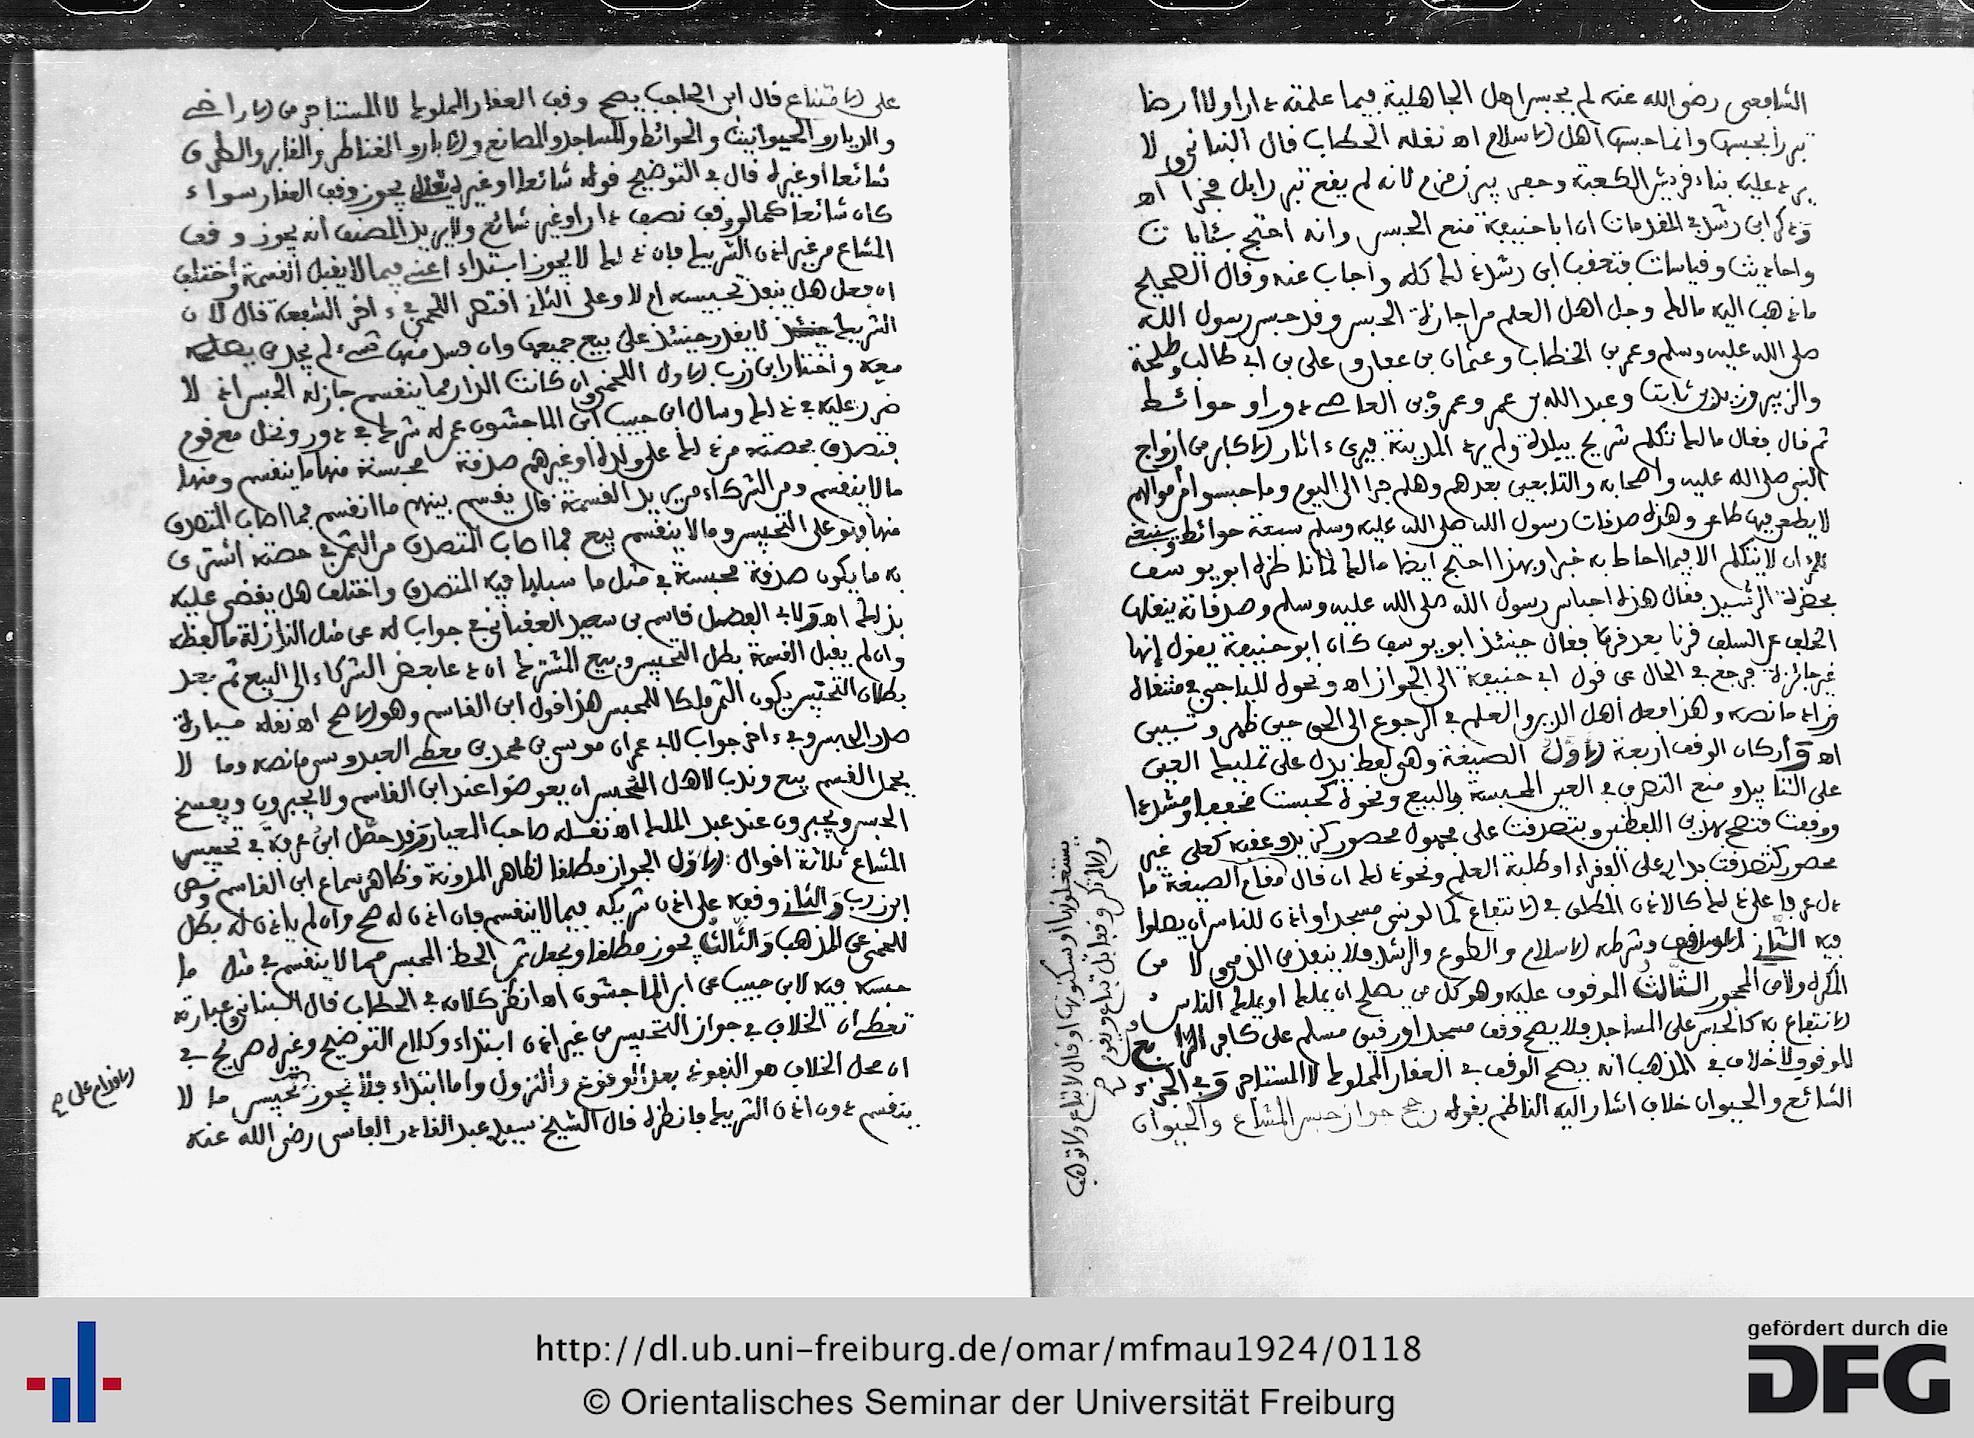 الشافعي رضي الله عنه لم يحبس اهل الجاهلية فيما علمته دارا ولا أرضا
تبررا بحبسها وانما حبس أهل الاسلام اه نقله الحطاب قال البناني ولا
يرد عليه بناء قريش الكعبة وحفر بير زمزم لانه لم يقع تبررا بل فخرا اه
وذكر ابن رشد في المقدمات ان ابا حنيفة منع الحبس وانه احتج بئايات
واحاديث وقياسات فتعقب ابن رشد ذلك كله وأجاب عنه وقال الصحيح
ما ذهب اليه مالك وجل اهل العلم من اجازة الحبس وقد حبس رسول الله
صلى الله عليه وسلم وعمر بن الخطاب وعثمان بن عفان وعلي بن ابي طالب وطلحة
والزبير وزيد بن ثابت وعبد الله بن عمر وعمرو بن العاصي دورا وحوائط
ثم قال فقال مالك تكلم شريح ببلده ولم يرد المدينة فيرى ءاثار الاكابر من ازواج
النبي صلى الله عليه وأصحابه والتابعين بعدهم وهلم جرا الى اليوم وما حبسوا من أموالهم
لا يطعن فيها طاعن وهذه صدقات رسول الله صلى الله عليه وسلم سبعة حوائط وينبغي
للمرء ان لا يتكلم الا فيما احاط به خبرا وبهذا احتج ايضا مالك لما ناظره ابو يوسف
بحضرة الرشيد فقال هذه احباس رسول الله صلى الله عليه وسلم وصدقاته ينقلها
الخلف عن السلف قرنا بعد قرن فقال حينئذ ابو يوسف كان ابو حنيفة يقول إنها
غير جائزة فرجع في الحال عن قول ابي حنيفة الى الجواز اه ونحوه للباجي في منتقاه
وزاد ما نصه وهذا فعل أهل الدين والعلم في الرجوع الى الحق حين ظهر وتبين
اه وأركان الوقف أربعة الأول الصيغة وهي لفظ يدل على تمليك العين
على التابيد ومنع التصرف في العين المحبسة بالبيع ونحوه كحبست مخففا ومشددا
ووقفت فتصح بهذين اللفظين وبتصدقت على مجهول محصور كزيد وعقبه كعلى غير
محصور كتصدقت بدار على الفقراء او طلبة العلم ونحو ذلك ان قال مقام الصيغة ما
دل عرفا على ذلك كالاذن المطلق في الانتفاع كما لو بنى مسجدا وأذن للناس أن يصلوا
فيه الثاني الواقف وشرطه الاسلام والطوع والرشد فلا ينفذ من الذمي ولا من
المكره ولا من المحجور الثالث الموقوف عليه وهو كل من يصلح ان يملك او يملك الناس
الانتفاع به كالحبس على المساجد فلا يصح وقف مسجد او رقيق مسلم على كافر الرابع
الموقوف ولا خلاف في المذهب انه يصح الوقف في العقار المملوك لا المستاجر وفي الجزء
الشائع والحيوان خلاف اشار اليه الناظم بقوله رجح جواز حبس المشاع والحيوان
على الامتناع قال ابن الحاجب يصح وقف العقار المملوك لا المستاجر من الاراضي
والديار والحيوانيت والحوائط والمساجد والمصانع والابار والقناطر والمقابر والطرق
شائعا أو غيره قال في التوضيح قوله شائعا او غيره يعني يجوز وقف العقار سواء
كان شائعا كما لو وقف نصف دارا وغير شائع ولا يريد المصنف أنه يجوز وقف
المشاع من غير اذن الشريك فإن ذلك لا يجوز ابتداء اعني فيما لا يقبل القسمة واختلف
ان فعل هل ينفذ تحبيسه ام لا وعلى الثاني اقتصر اللخمي في ءاخر الشفعة قال لان
الشريك لا يقدر حينئذ على بيع جميعها وان فسد منها شيء لم يجد من يصلحه
معه واختار ابن زرب الاول اللخمي وان كانت الدار مما ينقسم جاز له الحبس اذ لا
ضرر عليه في ذلك وسال ابن حبيب ابن الماجشون عمن له شرك في دور ونخل مع قوم
فتصدق بحصته من ذلك على ولده او غيرهم صدقة محبسة منها ما ينقسم ومنها
ما لا ينقسم ومن الشركاء من يريد القسمة قال يقسم بينهم ما انقسم فما اصاب المتصدق
منها فهو على التحبيس وما لا ينقسم بيع فما اصاب المتصدق من الثمن في حصته اشترى
به ما يكون صدقة محبسة في مثل ما سبلها فيه المتصدق واختلف هل يقضى عليه
بذلك اه ولابي الفضل قاسم بن سعيد العقباني في جواب له عن مثل النازلة ما لفظه
وان لم يقبل القسمة بطل التحبيس وبيع المشترك ان دعا بعض الشركاء الى البيع ثم بعد
بطلان التحبيس يكون الثمن ملكا للمحبس هذا قول ابن القاسم وهو الاصح اه نقله ميارة
صدر الحبس وفي ءاخر جواب لابي عمران موسى بن محمد بن معطي العبدوسي ما نصه وما لا
يحمل القسم بيع وندب لاهل التحبيس ان يعوضوا عند ابن القاسم ولا يجبرون ويفسخ
الحبس ويجبرون عند عبد الملك اه نقله صاحب المعيار وقد حصل ابن عرفة في تحبيس
المشاع ثلاثة اقوال: الاول الجواز مطلقا لظاهر المدونة وظاهر سماع ابن القاسم ونص
ابن زرب والثاني وقفه على اذن شريكه فيما لا ينقسم فان اذن له صح وان لم ياذن له بطل
للخمي عن المذهب والثالث يجوز مطلقا ويجعل ثمن الحظ المحبس مما لا ينقسم في مثل ما
حبسه فيه لابن حبيب عن ابن الماجشون اه انظر كلامه في الحطاب قال البناني وعبارته
تعطي أن الخلاف في جواز التحبيس من غير اذن ابتداء وكلام التوضيح وغيره صريح في
ان محل الخلاف هو النفوذ بعد الوقوع والنزول واما ابتداء فلا يجوز تحبيس ما لا
ينقسم دون اذن الشريك فانظره قال الشيخ سيد عبد القادر الفاسي رضي الله عنه
الاقدام على
http://dl.ub.uni-freiburg.de/omar/mfmau1924/0118
© Orientalisches Seminar der Universität Freiburg
gefördert durch die
DFG